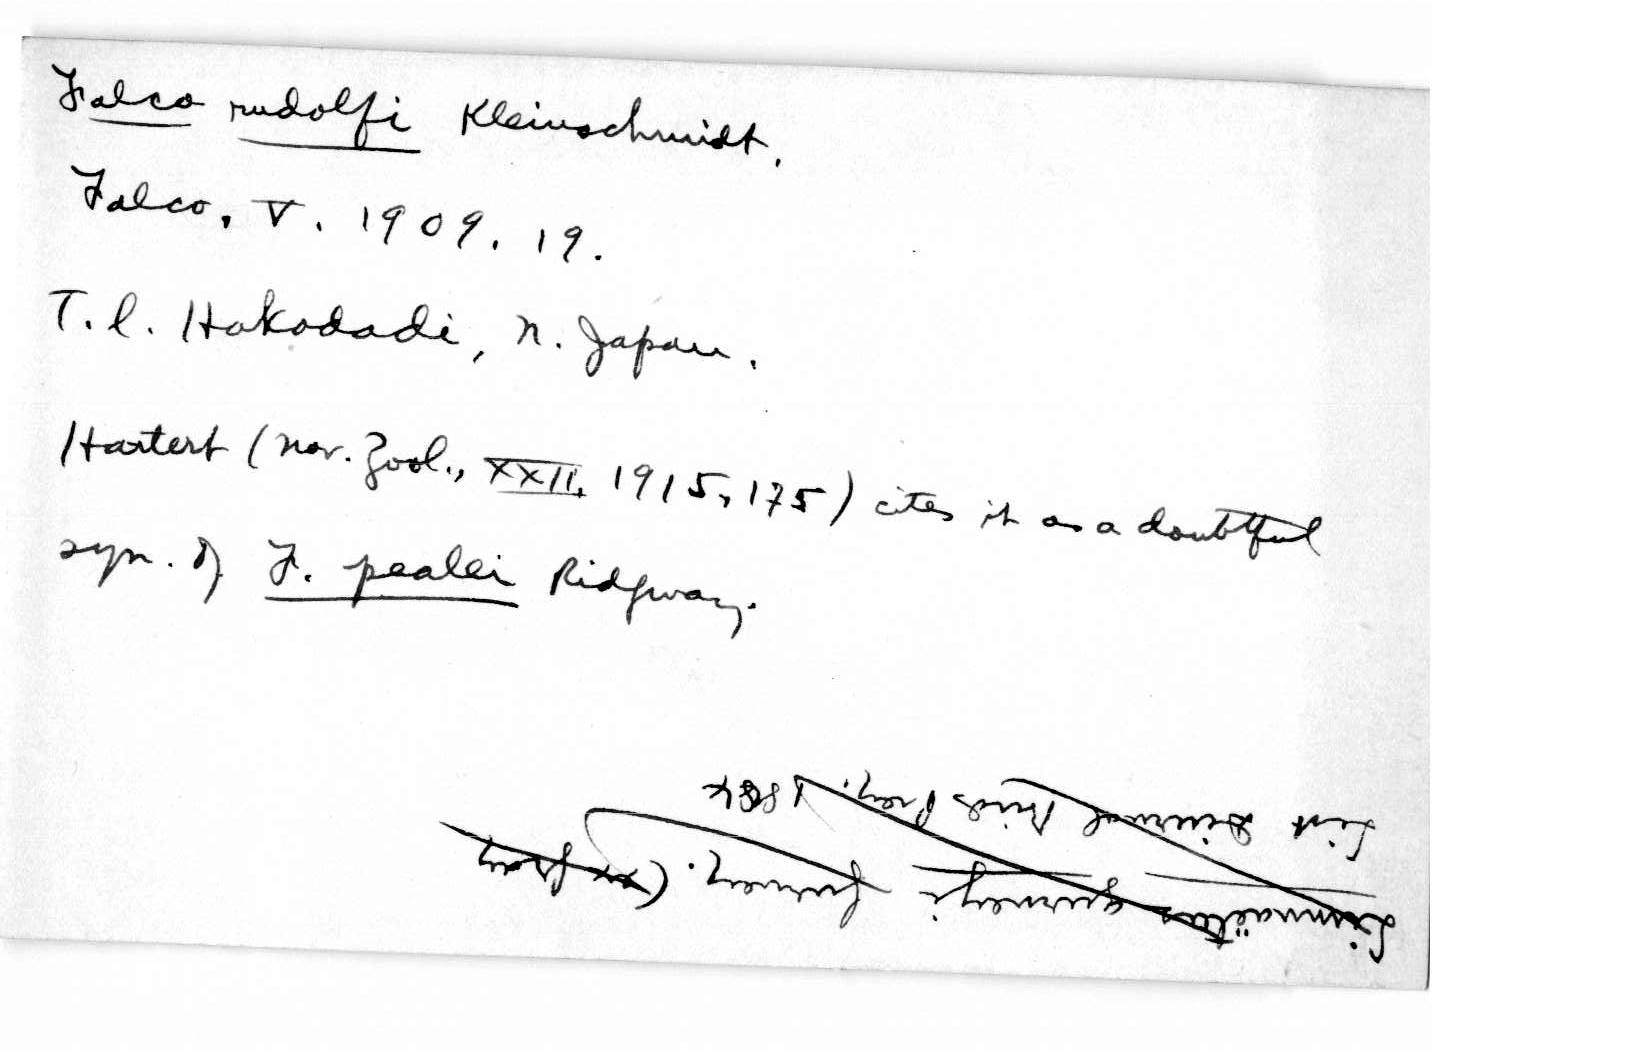 Falco rudolfi Kleinschmidt.
Falco. V. 1909. 19.
T.l. Hakodadi, N. Japan.
Hartert (Nov. Zool., XXII, 1915, 175) cites it as a doubtful
syn. of F. pealei Ridgway.
Limnaëtus gurneyi Gurney. (ex Gray
List Diurnal Birds Prey. 1884